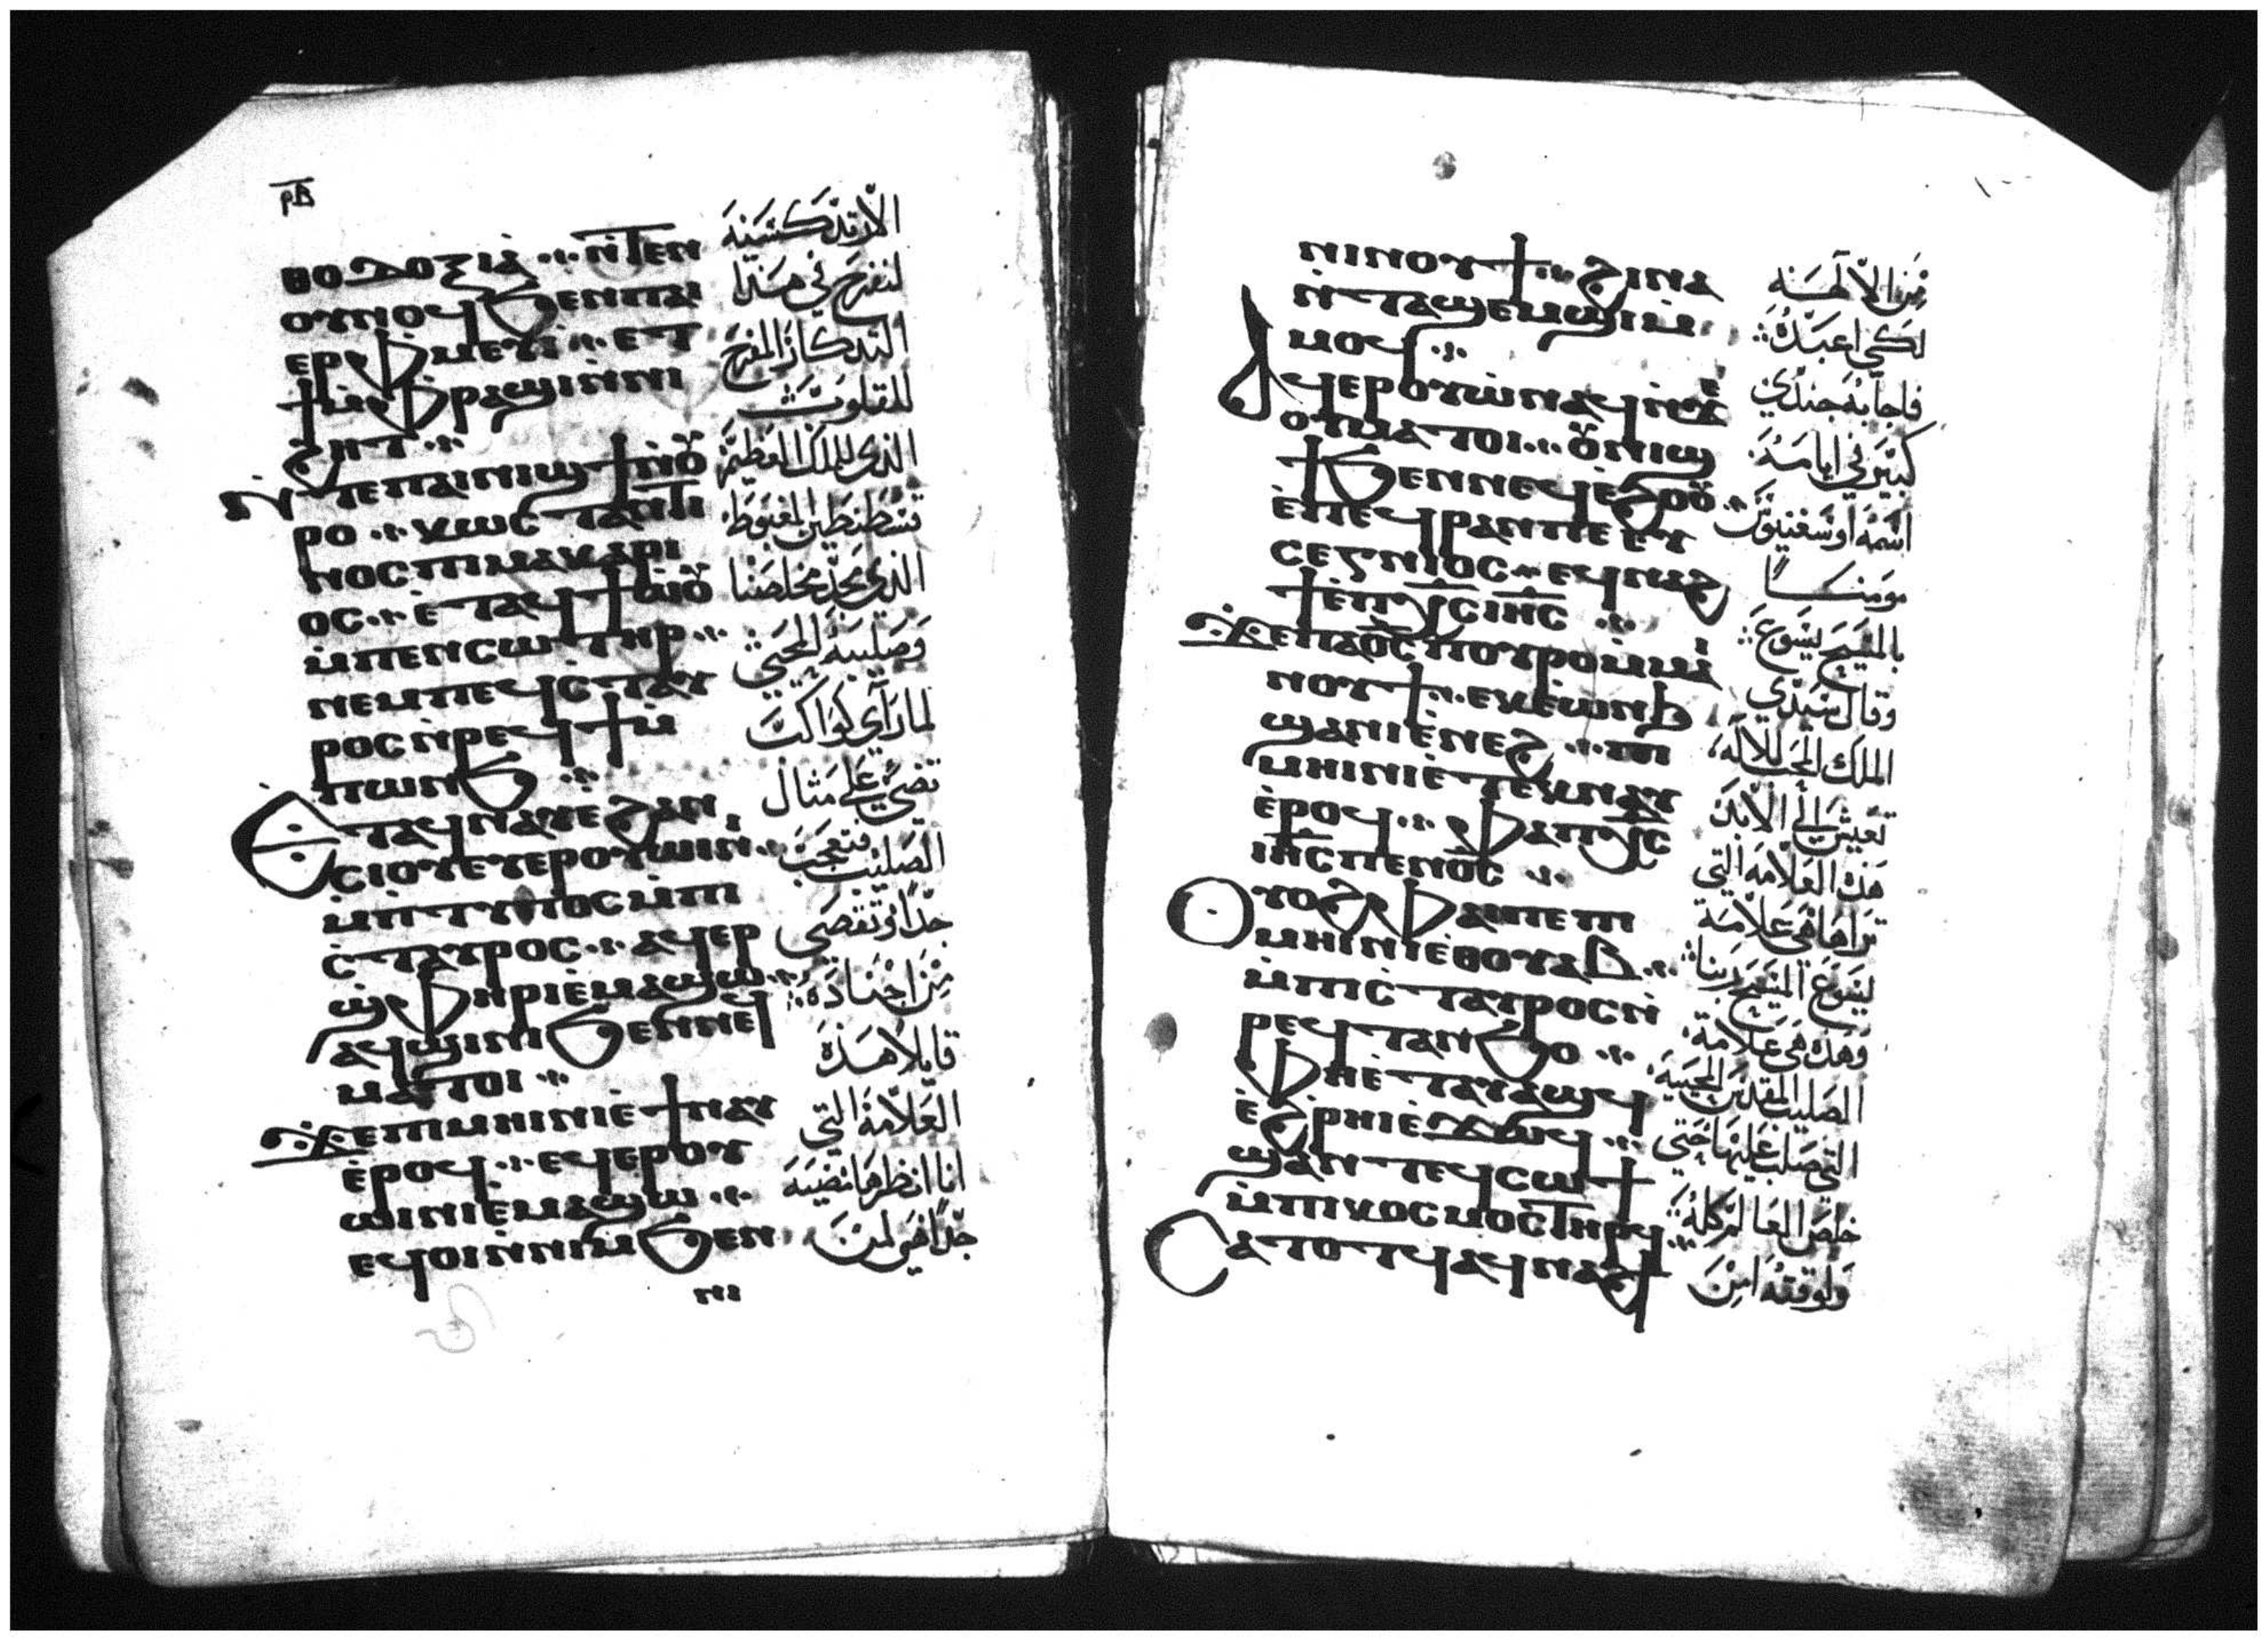 ⲣⲃ
ⲑⲟⲇⲟⲝⲓⲁ̀ ⲛ̀ⲧⲉⲛ
ⲟⲩⲛⲟϥ ϧⲉⲛⲡⲁⲓ
ⲉⲣⲫⲙⲉⲩⲓ̀ ⲉⲧ
ϯⲙ̀ⲫⲣⲁϣⲓⲛ̀ⲛⲓ
ϩⲏⲧ
ⲛ̀ⲧⲉⲡⲁⲓⲛⲓϣϯⲛ̀ⲟⲩ
ⲣⲟ ⲕⲱⲥⲧⲁⲛⲧⲓ
ⲛⲟⲥⲡⲓⲙⲁⲕⲁⲣⲓ
ⲟⲥ ⲉ̀ⲧⲁϥϯⲱ̀ⲟⲩ
ⲙ̀ⲡⲉⲛⲥⲱⲧⲏⲣ
ⲛⲉⲙⲡⲉϥⲥ̀ⲧⲁⲩ
ⲣⲟⲥⲛ̀ⲣⲉϥϯⲙ̀
ⲡⲱⲛϧ
Ⲉⲧⲁϥⲛⲁⲩⲉ̀ϩⲁⲛ
ⲥⲓⲟⲩⲉⲩⲉⲣⲟⲩⲱⲓⲛⲓ
ⲙ̀ⲡ̀ⲧⲩⲡⲟⲥⲙ̀ⲡⲓ
ⲥ̀ⲧⲁⲩⲣⲟⲥ ⲁϥⲉⲣ
ϣ̀ⲫⲏⲣⲓⲉ̀ⲙⲁϣⲱ
ⲁϥϣⲓⲛⲓ ϧⲉⲛⲛⲉϥ
ⲙⲁⲧⲟⲓ
ϫⲉⲡⲓⲙⲏⲓⲛⲓⲉ̀ϯⲛⲁⲩ
ⲉ̀ⲣⲟϥ ⲉϥⲉⲣⲟⲩ
ⲱⲓⲛⲓⲉ̀ⲙⲁϣⲱ
ⲉϥⲟⲓⲛ̀ⲛⲓⲙ ϧⲉⲛ
ⲛⲓ
الارتدكسية
لنفرح في هذا
التدكار المفرح
للقلوب
الذي للملك العظيم
قسطنطين المغبوط
الذي مجد مخلصنا
وصليبه المحيي
لما راي كواكب
تضي علي مثال
الصليب فتعجب
جدا وتقصي
من اجناده
قايلا هذه
العلامة التي
انا انظرها تضيه
جدا هي لمن
ⲛⲓⲛⲟⲩϯ ϩⲓⲛⲁ
ⲛ̀ⲧⲁϣⲉⲙϣⲓⲙ̀
ⲙⲟϥ
Ⲁϥⲉⲣⲟⲩⲱ̀ⲛⲁϥⲛ̀ϫⲉ
ⲟⲩⲙⲁⲧⲟⲓ ⲟⲩⲛⲓϣ
ϯ ϧⲉⲛⲛⲉϥⲉ̀ϩⲟⲟⲩ
ⲉ̀ⲡⲉϥⲣⲁⲛⲡⲉ ⲉⲩ
ⲥⲉⲅⲛⲓⲟⲥ ⲉϥⲛⲁϩ
ϯⲉ̀ⲡⲭ̅ⲥ̅ ⲓⲏ̅ⲥ̅
ϫⲉⲡⲁⲟ̅ⲥ̅ ⲡⲟⲩⲣⲟⲙ̀ⲙⲁⲓ
ⲛⲟⲩϯ ⲉⲕⲉⲱⲛϧ
ϣⲁⲛⲓⲉ̀ⲛⲉϩ ⲡⲓ
ⲙⲏⲓⲛⲓⲉ̀ⲧⲉⲕⲛⲁⲩ
ⲉ̀ⲣⲟϥ ⲫⲁⲡⲭ̅ⲥ̅
ⲓⲏ̅ⲥ̅ ⲡⲉⲛⲟ̅ⲥ̅
Ⲟⲩⲟϩ ⲫⲁⲓⲡⲉ ⲡⲓ
ⲙⲏⲓⲛⲓⲉ̀ⲑⲟⲩⲁⲃ
ⲙ̀ⲡⲓⲥ̀ⲧⲁⲩⲣⲟⲥⲛ̀
ⲣⲉϥⲧⲁⲛϧⲟ
ⲫⲏⲉ̀ⲧⲁⲩⲁϣϥ
ⲉ̀ϩ̀ⲣⲏⲓⲉ̀ϫⲱϥ
ϣⲁⲛⲧⲉϥⲥⲱϯ
ⲙ̀ⲡⲓⲕⲟⲥⲙⲟⲥⲧⲏⲣϥ
Ⲥⲁⲧⲟⲧϥ ⲁϥⲛⲁϩϯ
من الالهه
لكي اعبده
فاجابه جندي
كبير في ايامه
اسمه اوسغنيوس
مومنا
بالمسيح يسوع
وقال سيدي
الملك المحب للاله
تعيش الي الابد
هذه العلامه التي
تراها هي علامة
ليسوع المسيح ربنا
وهذه هي علامة
الصليب المقدس المحييه
التي صلب عليها حتي
خلص العالم كله
ولوقته امن